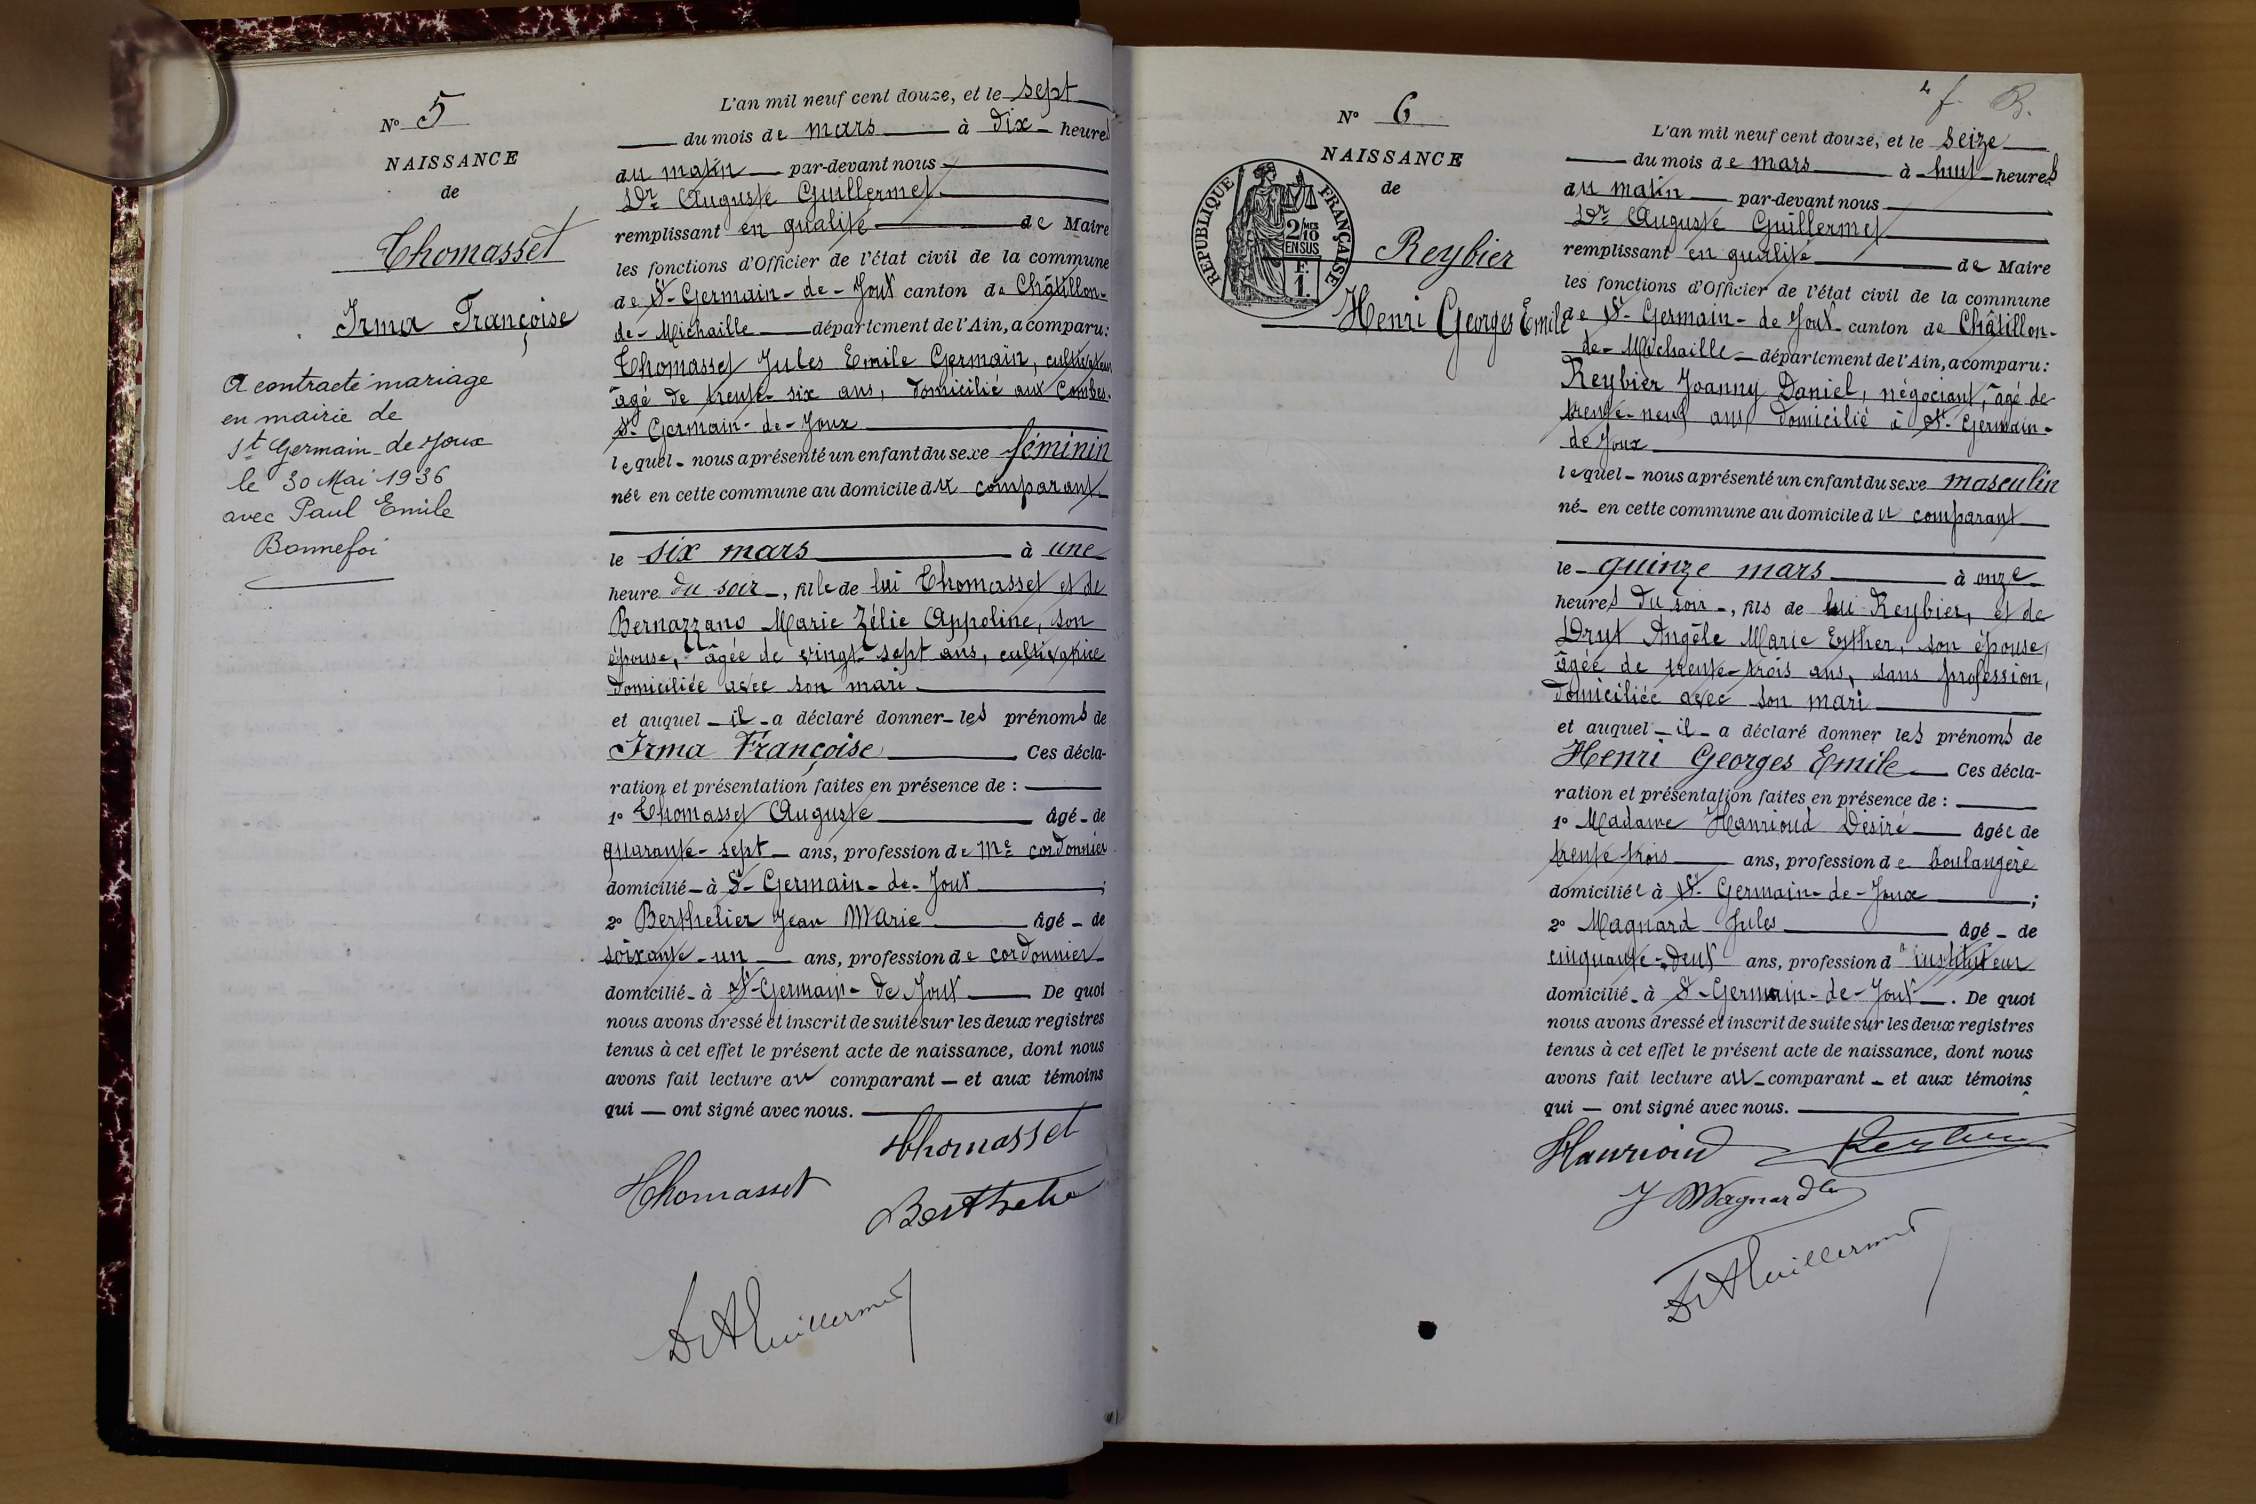 Nº 5
NAISSANCE
de
Thomasset
Irma Françoise
A contracté mariage
en mairie de
St Germain-de-Joux
le 30 Mai 1936
avec Paul Emile
Bonnefoi
L'an mil neuf cent douze, et le sept
du mois de mars à dix heures
du matin par-devant nous
Dr Auguste Guillermet
remplissant en qualité de Maire
les fonctions d'Officier de l'état civil de la commune
de St-Germain-de-Joux canton de Châtillon-
de-Michaille département de l'Ain, a comparu:
Thomasset Jules Emile Germain, cultivateur
âgé de trente-six ans, domicilié aux Combes.
St-Germain-de-Joux
lequel nous a présenté un enfant du sexe féminin
née en cette commune au domicile du comparant
le six mars à une
heure du soir, fille de lui Thomasset et de
Bernazzano Marie Zélie Appoline, son
épouse, âgée de vingt-sept ans, cultivatrice
domiciliée avec son mari
et auquel il a déclaré donner les prénoms de
Irma Françoise Ces décla-
ration et présentation faites en présence de :
1º Thomasset Auguste âgé de
quarante-sept ans, profession de Me cordonnier
domicilié à St-Germain-de-Joux ;
2º Berthelier Jean Marie âgé de
soixante-un ans, profession de cordonnier
domicilié à St-Germain-de-Joux De quoi
nous avons dressé et inscrit de suite sur les deux registres
tenus à cet effet le présent acte de naissance, dont nous
avons fait lecture au comparant et aux témoins
qui ont signé avec nous.
Thomasset
Thomasset
Berthelie
Dr A Guillermet
4 f. B.
Nº 6
NAISSANCE
de
RÉPUBLIQUE FRANÇAISE
2/10 MES
EN SUS
F.
1.
Reybier
Henri Georges Emile
L'an mil neuf cent douze, et le seize
du mois de mars à huit heures
du matin par-devant nous
Dr Auguste Guillermet
remplissant en qualité de Maire
les fonctions d'Officier de l'état civil de la commune
de St-Germain-de Joux canton de Châtillon-
de-Michaille département de l'Ain, a comparu:
Reybier Joanny Daniel, négociant, âgé de
trente-neuf ans domicilié à St-Germain-
de Joux
lequel nous a présenté un enfant du sexe masculin
né en cette commune au domicile du comparant
le quinze mars à onze
heures du soir, fils de lui Reybier, et de
Drut Angèle Marie Esther, son épouse,
âgée de trente-trois ans, sans profession,
domiciliée avec son mari
et auquel il a déclaré donner les prénoms de
Henri Georges Emile Ces décla-
ration et présentation faites en présence de :
1º Madame Hanrioud Désiré âgée de
trente trois ans, profession de boulangère
domiciliée à St-Germain-de-Joux ;
2º Magnard Jules âgé de
cinquante-deux ans, profession d'instituteur
domicilié à St-Germain-de-Joux. De quoi
nous avons dressé et inscrit de suite sur les deux registres
tenus à cet effet le présent acte de naissance, dont nous
avons fait lecture au comparant et aux témoins
qui ont signé avec nous.
Hanrioud Reybier
J Magnard
Dr A Guillermet